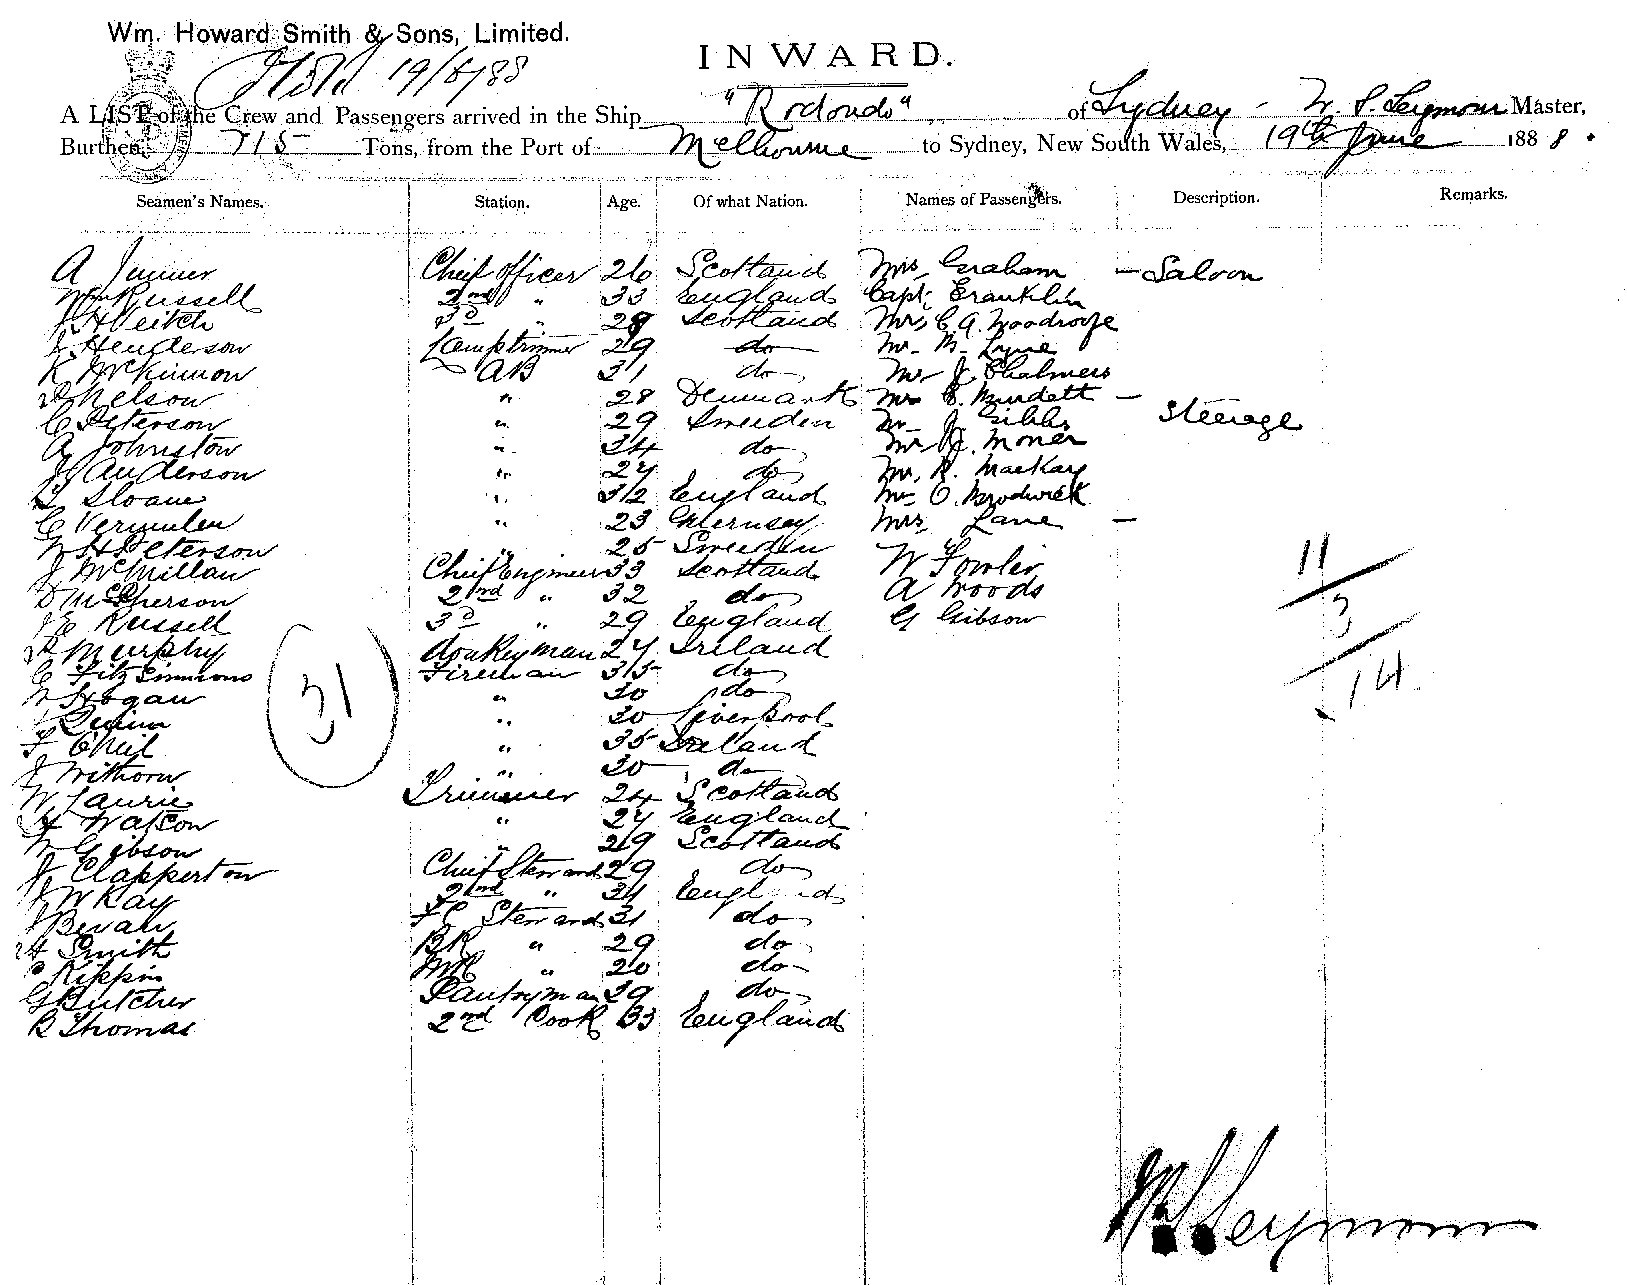 Wm. Howard Smith & Sons, Limited.
INWARD.
19/6/88
A LIST of the Crew and Passengers arrived in the Ship "Rodondo" of Sydney - W. S. Seymour Master,
Burthen, 715 Tons, from the Port of Melbourne to Sydney, New South Wales, 19th June 1888.
Seamen's Names. Station. Age. Of what Nation. Names of Passengers. Description. Remarks.
A Junner Chief officer 26 Scotland Mrs Graham - Saloon
Wm Russell 2nd " 33 England Capt. Franklin
J H Veitch 3d " 28 Scotland Mrs C. A. Woodroofe
Henderson Lamptrimmer 29 do Mr. M. Lyne
K McKinnon AB 31 do Mr J Chalmers
Nelson " 28 Denmark Burdett -
C Peterson " 29 Sweden Mr J Gibbs Steerage
A Johnston " 34 do Moner
J Anderson " 27 do Mr. R. MacKay
Sloane " 32 England Mr O. Brodwick
C Vermulen " 23 Guernsey Mrs Lane -
W H Peterson " 25 Sweden
J McMillan Chief Engineer 33 Scotland W Fowler
D McPherson 2nd " 32 do A Woods
Russell 3d " 29 England G Gibson
Murphy Donkeyman 27 Ireland
C FitzSimmons Fireman 35 do
W Hogan " 30 do
J Quinn " 30 Liverpool
F ONeil " 35 Ireland
J Withorn " 30 do
W Laurie Trimmer 24 Scotland
Watson " 27 England
W Gibson " 29 Scotland
J Clapperton Chief Steward 29 do
J W Kay 2nd " 31 England
J Bevan FC Steward 31 do
H Smith BR " 29 do
C Kippin " 20 do
G Butcher Pantryman 29 do
R Thomas 2nd Cook 33 England
31
11
3
14
W S Seymour